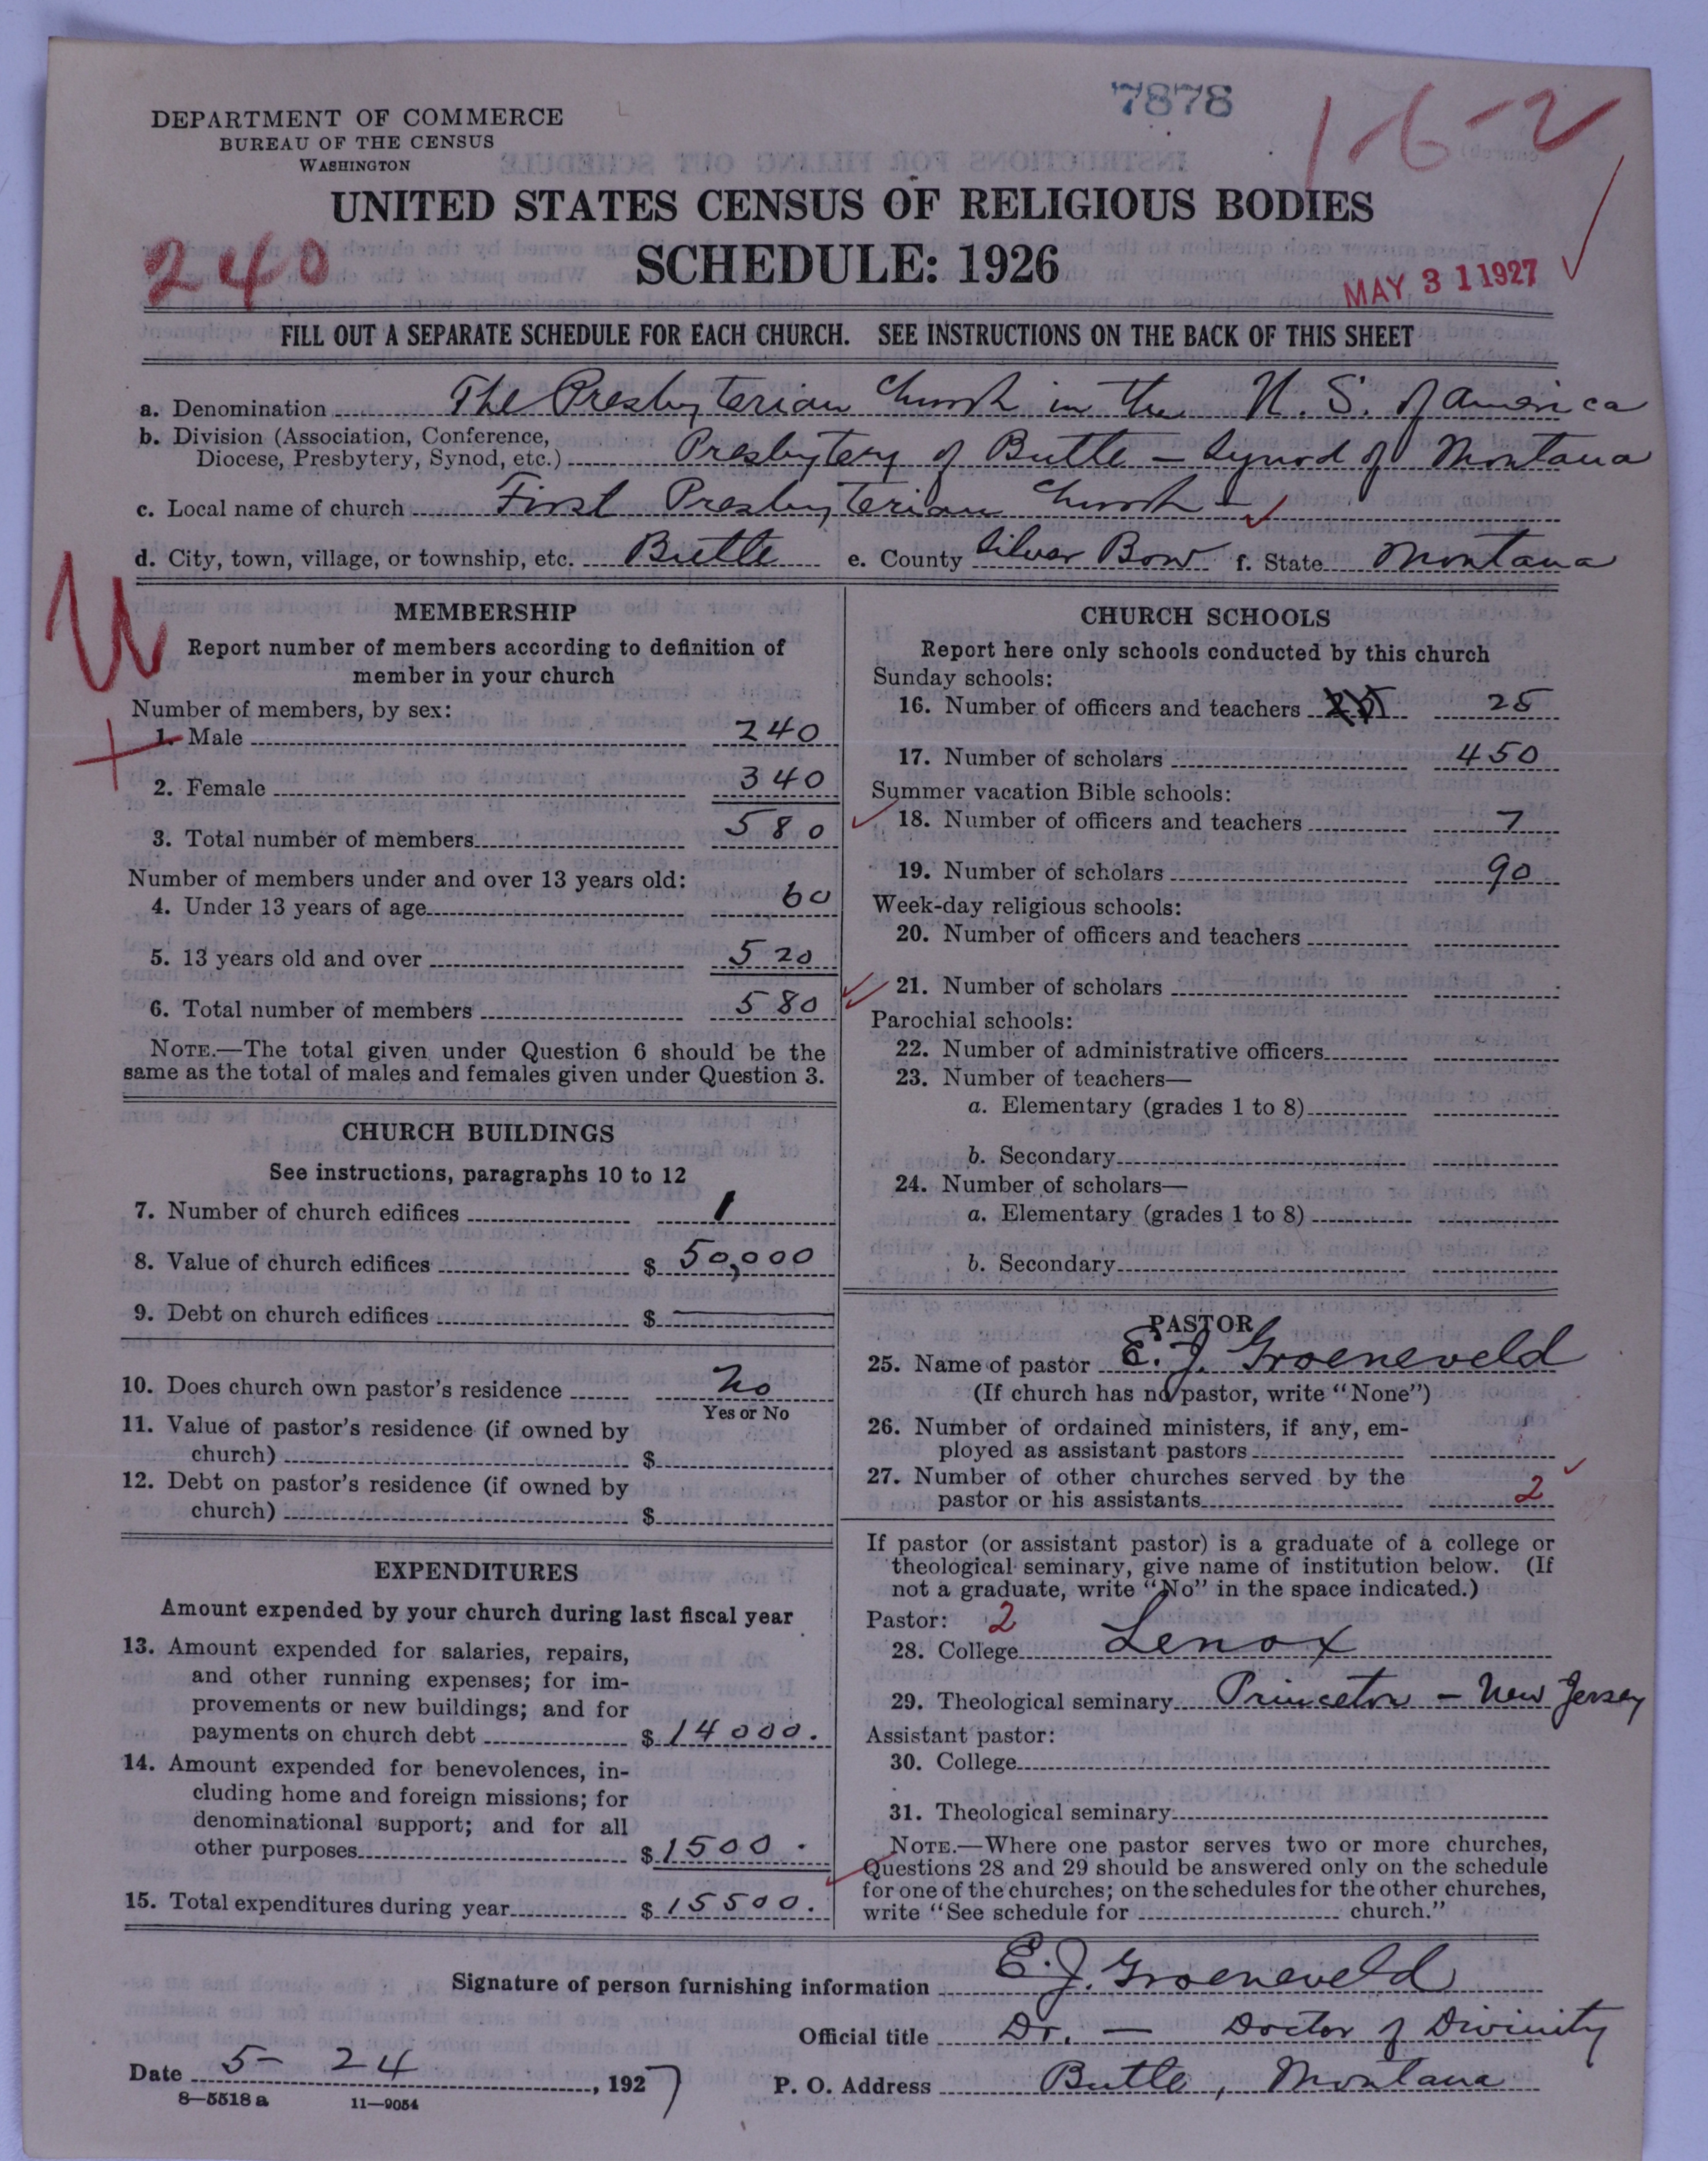 7878
1-6-2
DEPARTMENT OF COMMERCE
BUREAU OF THE CENSUS
WASHINGTON
UNITED STATES CENSUS OF RELIGIOUS BODIES
SCHEDULE: 1926
240
MAY 31 1927
FILL OUT A SEPARATE SCHEDULE FOR EACH CHURCH. SEE INSTRUCTIONS ON THE BACK OF THIS SHEET
a. Denomination The Presbyterian Church in the U.S. of America
b. Division (Association, Conference,
Diocese, Presbytery, Synod, etc.) Presbytery of Butte - Synod of Montana
c. Local name of church First Presbyterian Church -
d. City, town, village, or township, etc. Butte e. County Silver Bow f. State Montana
U
MEMBERSHIP
Report number of members according to definition of
member in your church
Number of members, by sex:
1. Male 240
2. Female 340
3. Total number of members 580
Number of members under and over 13 years old:
4. Under 13 years of age 60
5. 13 years old and over 520
6. Total number of members 580
NOTE.—The total given under Question 6 should be the
same as the total of males and females given under Question 3.
CHURCH BUILDINGS
See instructions, paragraphs 10 to 12
7. Number of church edifices 1
8. Value of church edifices $ 50,000
9. Debt on church edifices $
10. Does church own pastor's residence No
Yes or No
11. Value of pastor's residence (if owned by
church) $
12. Debt on pastor's residence (if owned by
church) $
EXPENDITURES
Amount expended by your church during last fiscal year
13. Amount expended for salaries, repairs,
and other running expenses; for im-
provements or new buildings; and for
payments on church debt $ 14000.
14. Amount expended for benevolences, in-
cluding home and foreign missions; for
denominational support; and for all
other purposes $ 1500.
15. Total expenditures during year $ 15500.
CHURCH SCHOOLS
Report here only schools conducted by this church
Sunday schools:
16. Number of officers and teachers 25 25
17. Number of scholars 450
Summer vacation Bible schools:
18. Number of officers and teachers 7
19. Number of scholars 90
Week-day religious schools:
20. Number of officers and teachers
21. Number of scholars
Parochial schools:
22. Number of administrative officers
23. Number of teachers—
a. Elementary (grades 1 to 8)
b. Secondary
24. Number of scholars—
a. Elementary (grades 1 to 8)
b. Secondary
PASTOR
25. Name of pastor E. J. Groeneveld
(If church has no pastor, write "None")
26. Number of ordained ministers, if any, em-
ployed as assistant pastors
27. Number of other churches served by the
pastor or his assistants 2
If pastor (or assistant pastor) is a graduate of a college or
theological seminary, give name of institution below. (If
not a graduate, write "No" in the space indicated.)
Pastor: 2
28. College Lenox
29. Theological seminary Princeton - New Jersey
Assistant pastor:
30. College
31. Theological seminary
NOTE.—Where one pastor serves two or more churches,
Questions 28 and 29 should be answered only on the schedule
for one of the churches; on the schedules for the other churches,
write "See schedule for church."
Signature of person furnishing information E. J. Groeneveld
Official title Dr. — Doctor of Divinity
Date 5- 24, 1927 P. O. Address Butte, Montana
8—5518a 11—9054